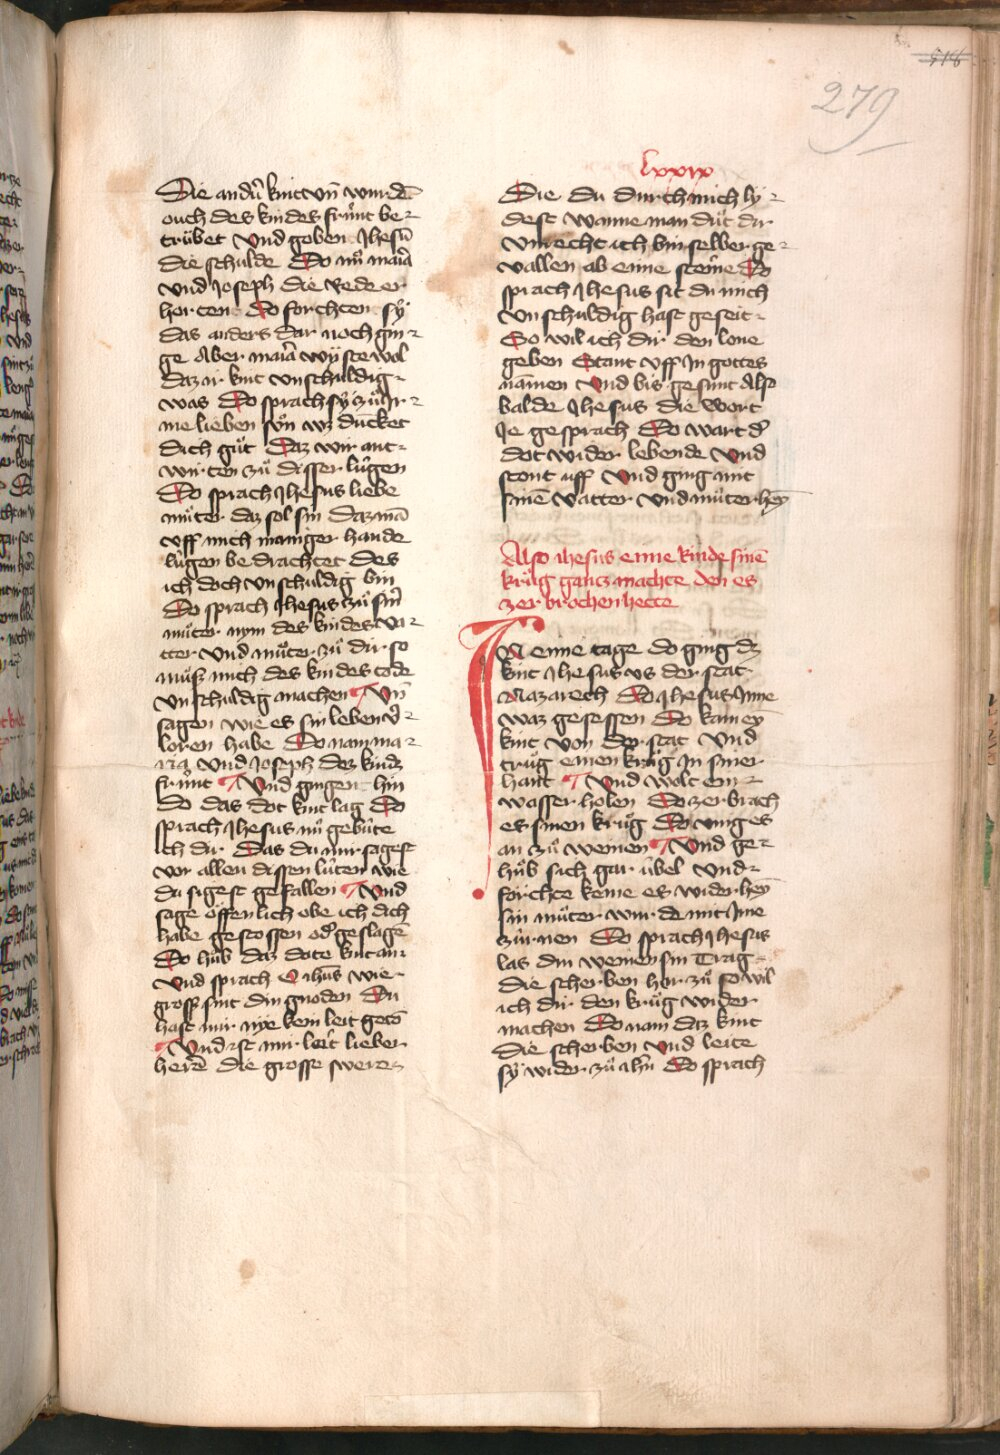 518
279
lxxix
Die andn̄ kint vn̄ wurdē
ouch des kindes frünt be
trübet Vnd goben Jhesū
die schulde Do nů maiā
vnd Joseph die rede er
horten Do forchten sÿ
das anders dar noch gin
ge Aber maiā wÿste wol
daz ir kint vnschuldig
was Do sprach sÿ zů Jr
me lieben sůn wz duncket
dich gůt Daz wir ant
wirten zů disser lügen
Do sprach Jhesus liebe
můter daz sol sin Daz mā
vff mich maniger hande
lügen be drachtet des
ich doch vnschuldig bin
Do sprach Jhesus zů sinr̄
můter nym des kindes va
tter vnd můter zů dir so
můsz mich des kindes tode
vnschuldig machen Vn̄
sagen wie es sin leben v̄
loren habe Do nam ma
ria vnd Joseph dez kindz
frünt Vnd gingen hin
do das dot kint lag Do
sprach Jhesus nů gebüte
ich dir Das du mir sagest
vor allen dissen lüten wie
du sigest gefallen Vnd
sage offenlich obe ich dich
habe gestossen od' geslagē
Do hůb daz dote kint an
Vnd sprach O ihūs wie
gross sint din gnoden Du
hast mir nÿe kein leit getō
Vnd ist mir leit lieber
herē die grosse swerez
Die du durch mich ly
dest wanne man důt dir
vnrecht ich bin selber ge
vallen ab eime steine Do
sprach Jhesus sit du mich
vnschuldig hast geseit
So wil ich dir den lone
geben Stant vff in gottes
nāmen Vnd bis gesunt Also
balde Jhesus die wort
Je gesprach Do wart d'
dot wider lebende Vnd
stont uff Vnd ging mit
sinē vatter vnd můter heÿ
Also ihesus eime kinde sinē
krůg gantz machte den es
zerbrochen hette
An eime tage do ging dz
kint Jhesus vs der stat
Nazarech Do Jhesus Jnne
waz gesessen Do kam eÿ
kint von der stat Vnd
trůg einen krůg Jn siner
hant Vnd wolt ein
wasser holen Do zerbrach
es sinen krůg Do vinges
an zů weinen Vnd ge
hůb sich gar übel Vnd
forchte keme es wider heÿ
sin můter wurde mit Jme
zürnen Do sprach Jhesus
las din weinen sin Trag
die scherben her zů so wil
ich dir den krůg wider
machen Do nam daz kint
die scherben vnd leite
sÿ wider zů ihn̄ Do sprach